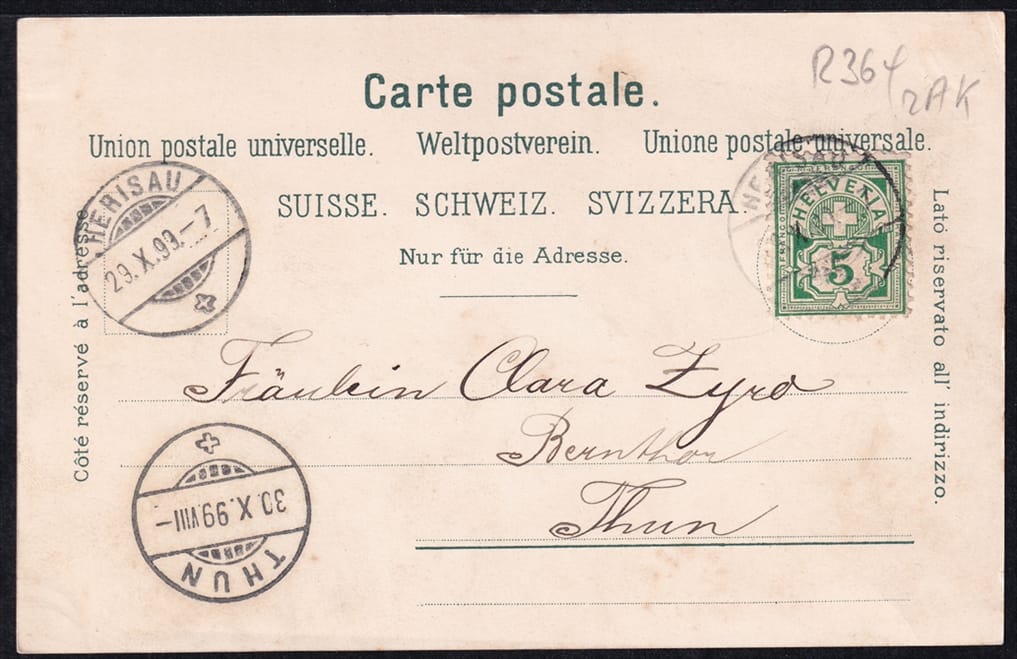 R364
2AK
Carte postale.
Union postale universelle. Weltpostverein. Unione postale universale.
SUISSE. SCHWEIZ. SVIZZERA.
Nur für die Adresse.
Côté réservé à l'adresse
Lato riservato all' indirizzo.
HERISAU
29.X.99.–7
HERISAU
HELVETIA
FRANCO
5
Fräulein Clara Zyro
Bernthor
Thun
30.X.99.VIII–
THUN